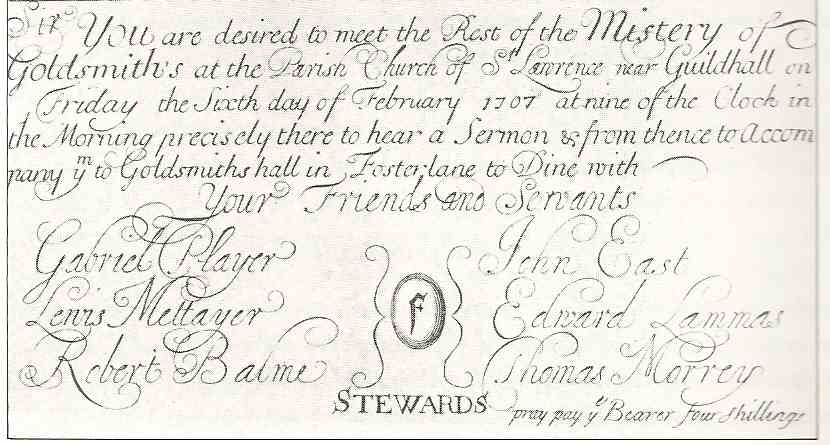 Sir You are desired to meet the Rest of the Mistery of
Goldsmiths at the Parish Church of St Lawrence near Guildhall on
Friday the Sixth day of February 1707 at nine of the Clock in
the Morning precisely there to hear a Sermon & from thence to Accom
pany ym to Goldsmiths hall in Foster lane to Dine with
Your Friends and Servants
Gabriel Player John East
Lewis Mettayer Edward Lammas
f
Robert Balme Thomas Morrey
STEWARDS pray pay ye Bearer four shillings